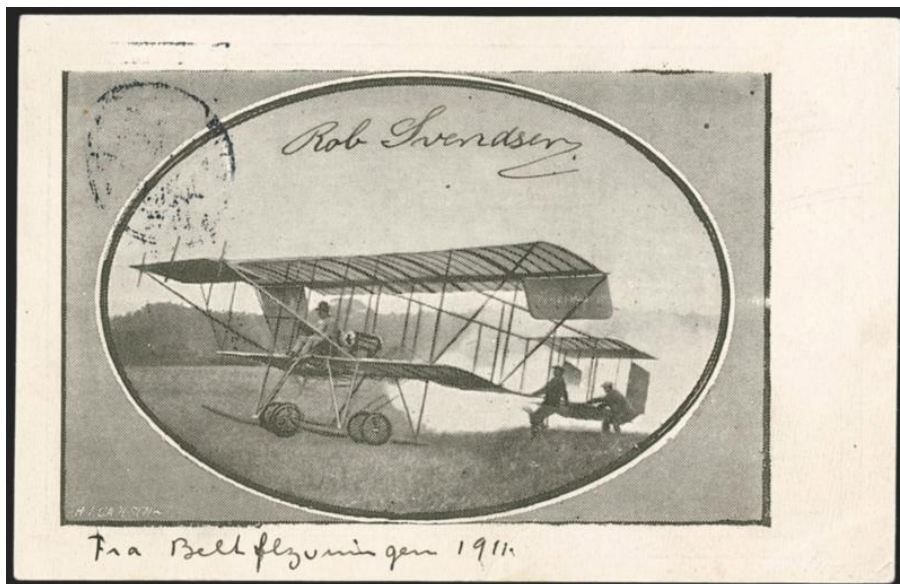 Rob Svendsen
Fra Beltflyvningen 1911.